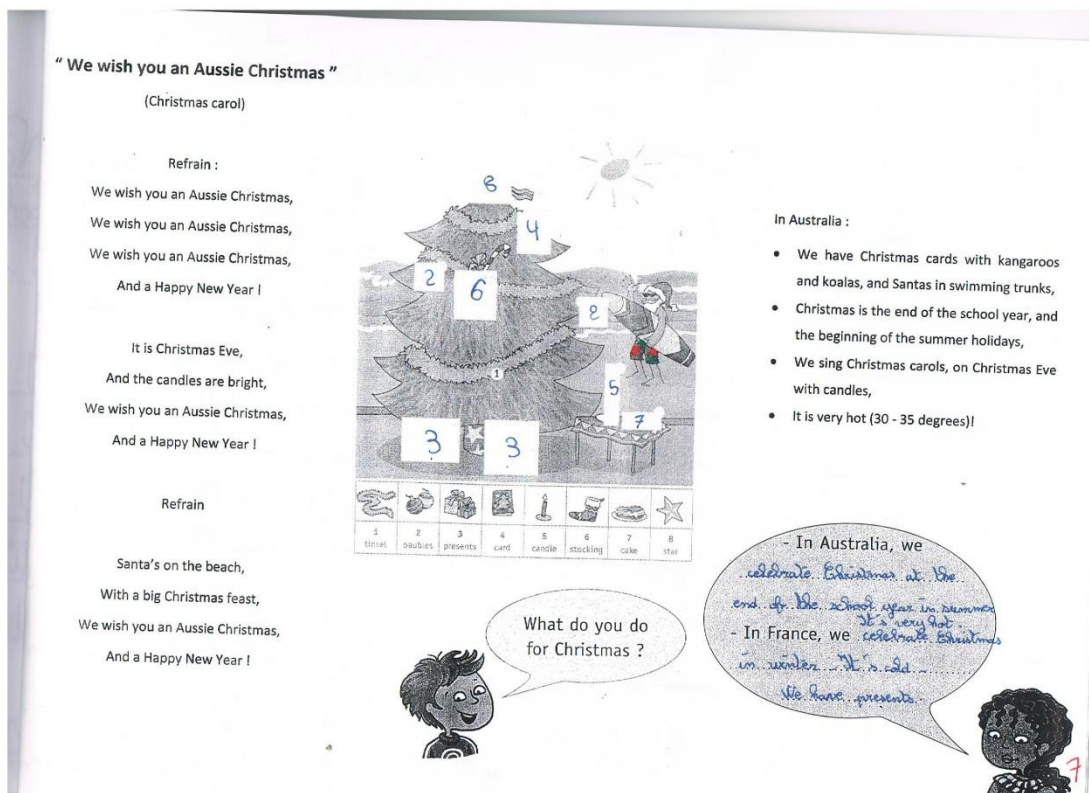 " We wish you an Aussie Christmas "
(Christmas carol)
Refrain :
We wish you an Aussie Christmas,
We wish you an Aussie Christmas,
We wish you an Aussie Christmas,
And a Happy New Year !
It is Christmas Eve,
And the candles are bright,
We wish you an Aussie Christmas,
And a Happy New Year !
Refrain
Santa's on the beach,
With a big Christmas feast,
We wish you an Aussie Christmas,
And a Happy New Year !
8
4
2
6
2
1
5
7
3
3
1 2 3 4 5 6 7 8
tinsel baubles presents card candle stocking cake star
In Australia :
• We have Christmas cards with kangaroos
and koalas, and Santas in swimming trunks,
• Christmas is the end of the school year, and
the beginning of the summer holidays,
• We sing Christmas carols, on Christmas Eve
with candles,
• It is very hot (30 - 35 degrees)!
What do you do
for Christmas ?
- In Australia, we
celebrate Christmas at the
end of the school year in summer
It's very hot.
- In France, we celebrate Christmas
in winter. It's cold.
We have presents.
7